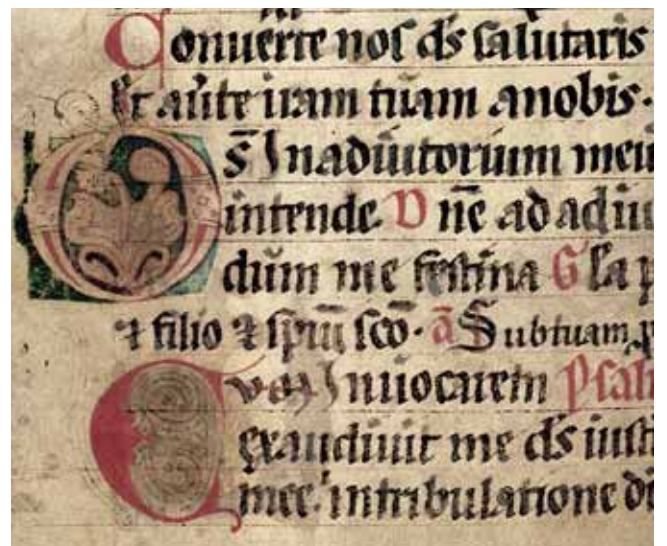 Conuerte nos ds salutaris
Et auerte iram tuam anobis.
Ds Inadiutorium meu
intende. Dne ad adiu
dum me festina Gla p
⁊ filio ⁊ spiu sco. a Subtuam p
Cum Inuocarem Psal
exaudiuit me ds iusti
mee. intribulatione di